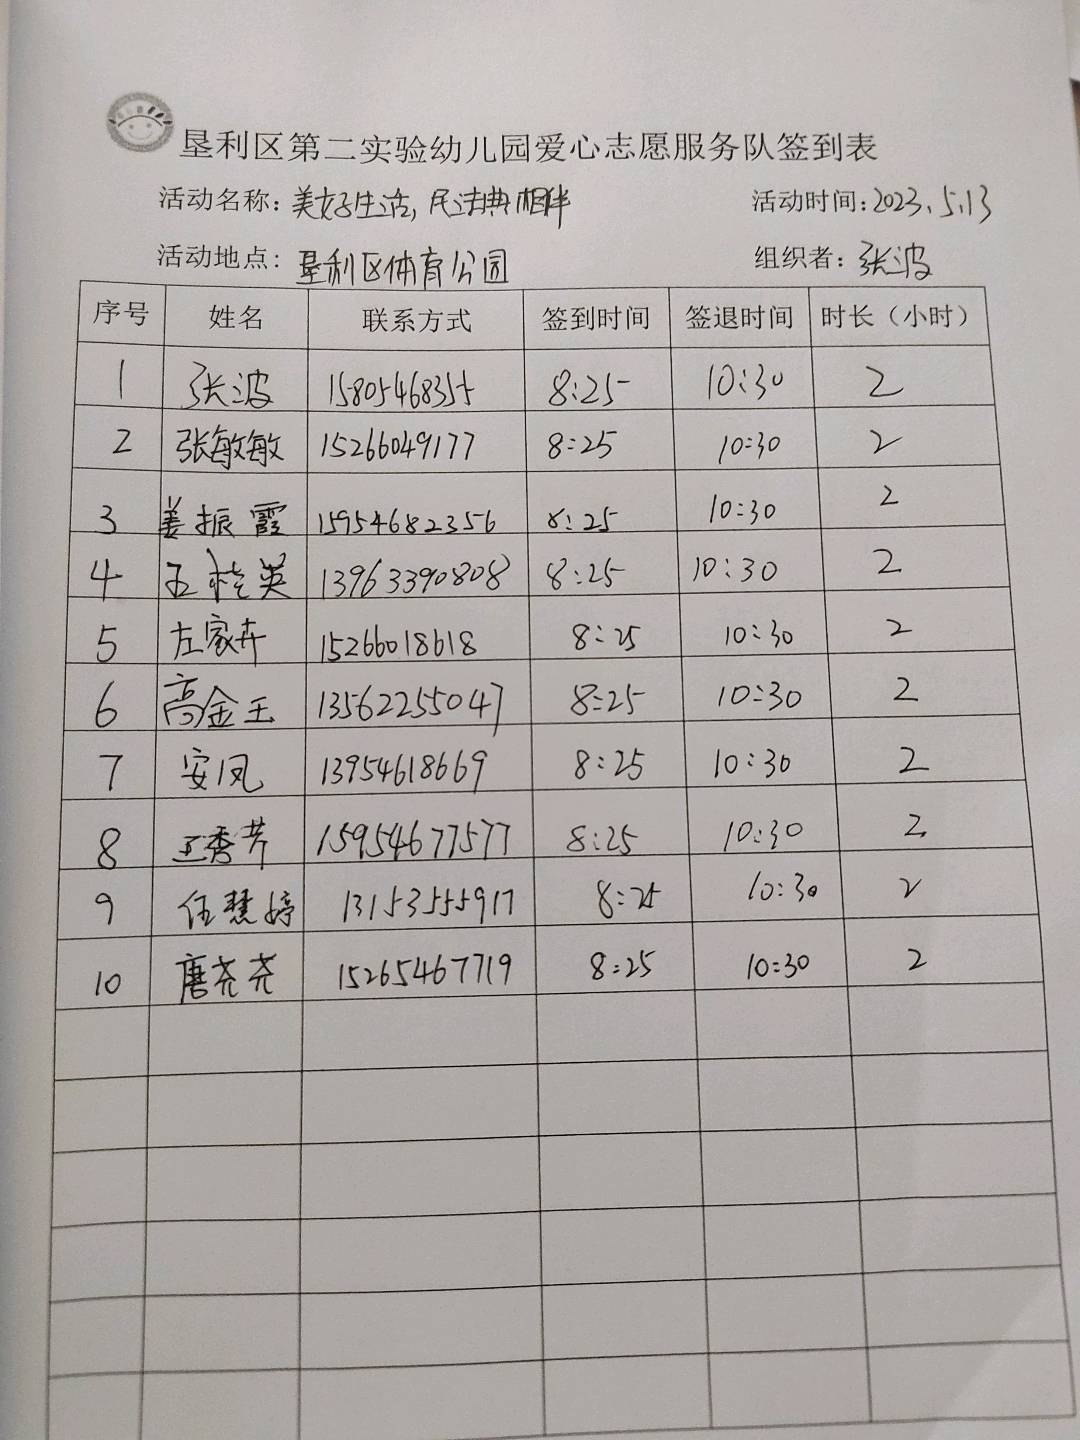 垦利区第二实验幼儿园爱心志愿服务队签到表
活动名称: 美好生活, 民法典相伴 活动时间: 2023.5.13
活动地点: 垦利区体育公园 组织者: 张波
序号 姓名 联系方式 签到时间 签退时间 时长（小时）
1 张波 15805468355 8:25 10:30 2
2 张敏敏 15266049177 8:25 10:30 2
3 姜振霞 15954682356 8:25 10:30 2
4 王桂英 13963390808 8:25 10:30 2
5 左家卉 15266018618 8:25 10:30 2
6 高金玉 13562255047 8:25 10:30 2
7 安凤 13954618669 8:25 10:30 2
8 王秀芹 15954677577 8:25 10:30 2
9 任慧婷 13153555917 8:25 10:30 2
10 唐尧尧 15265467719 8:25 10:30 2